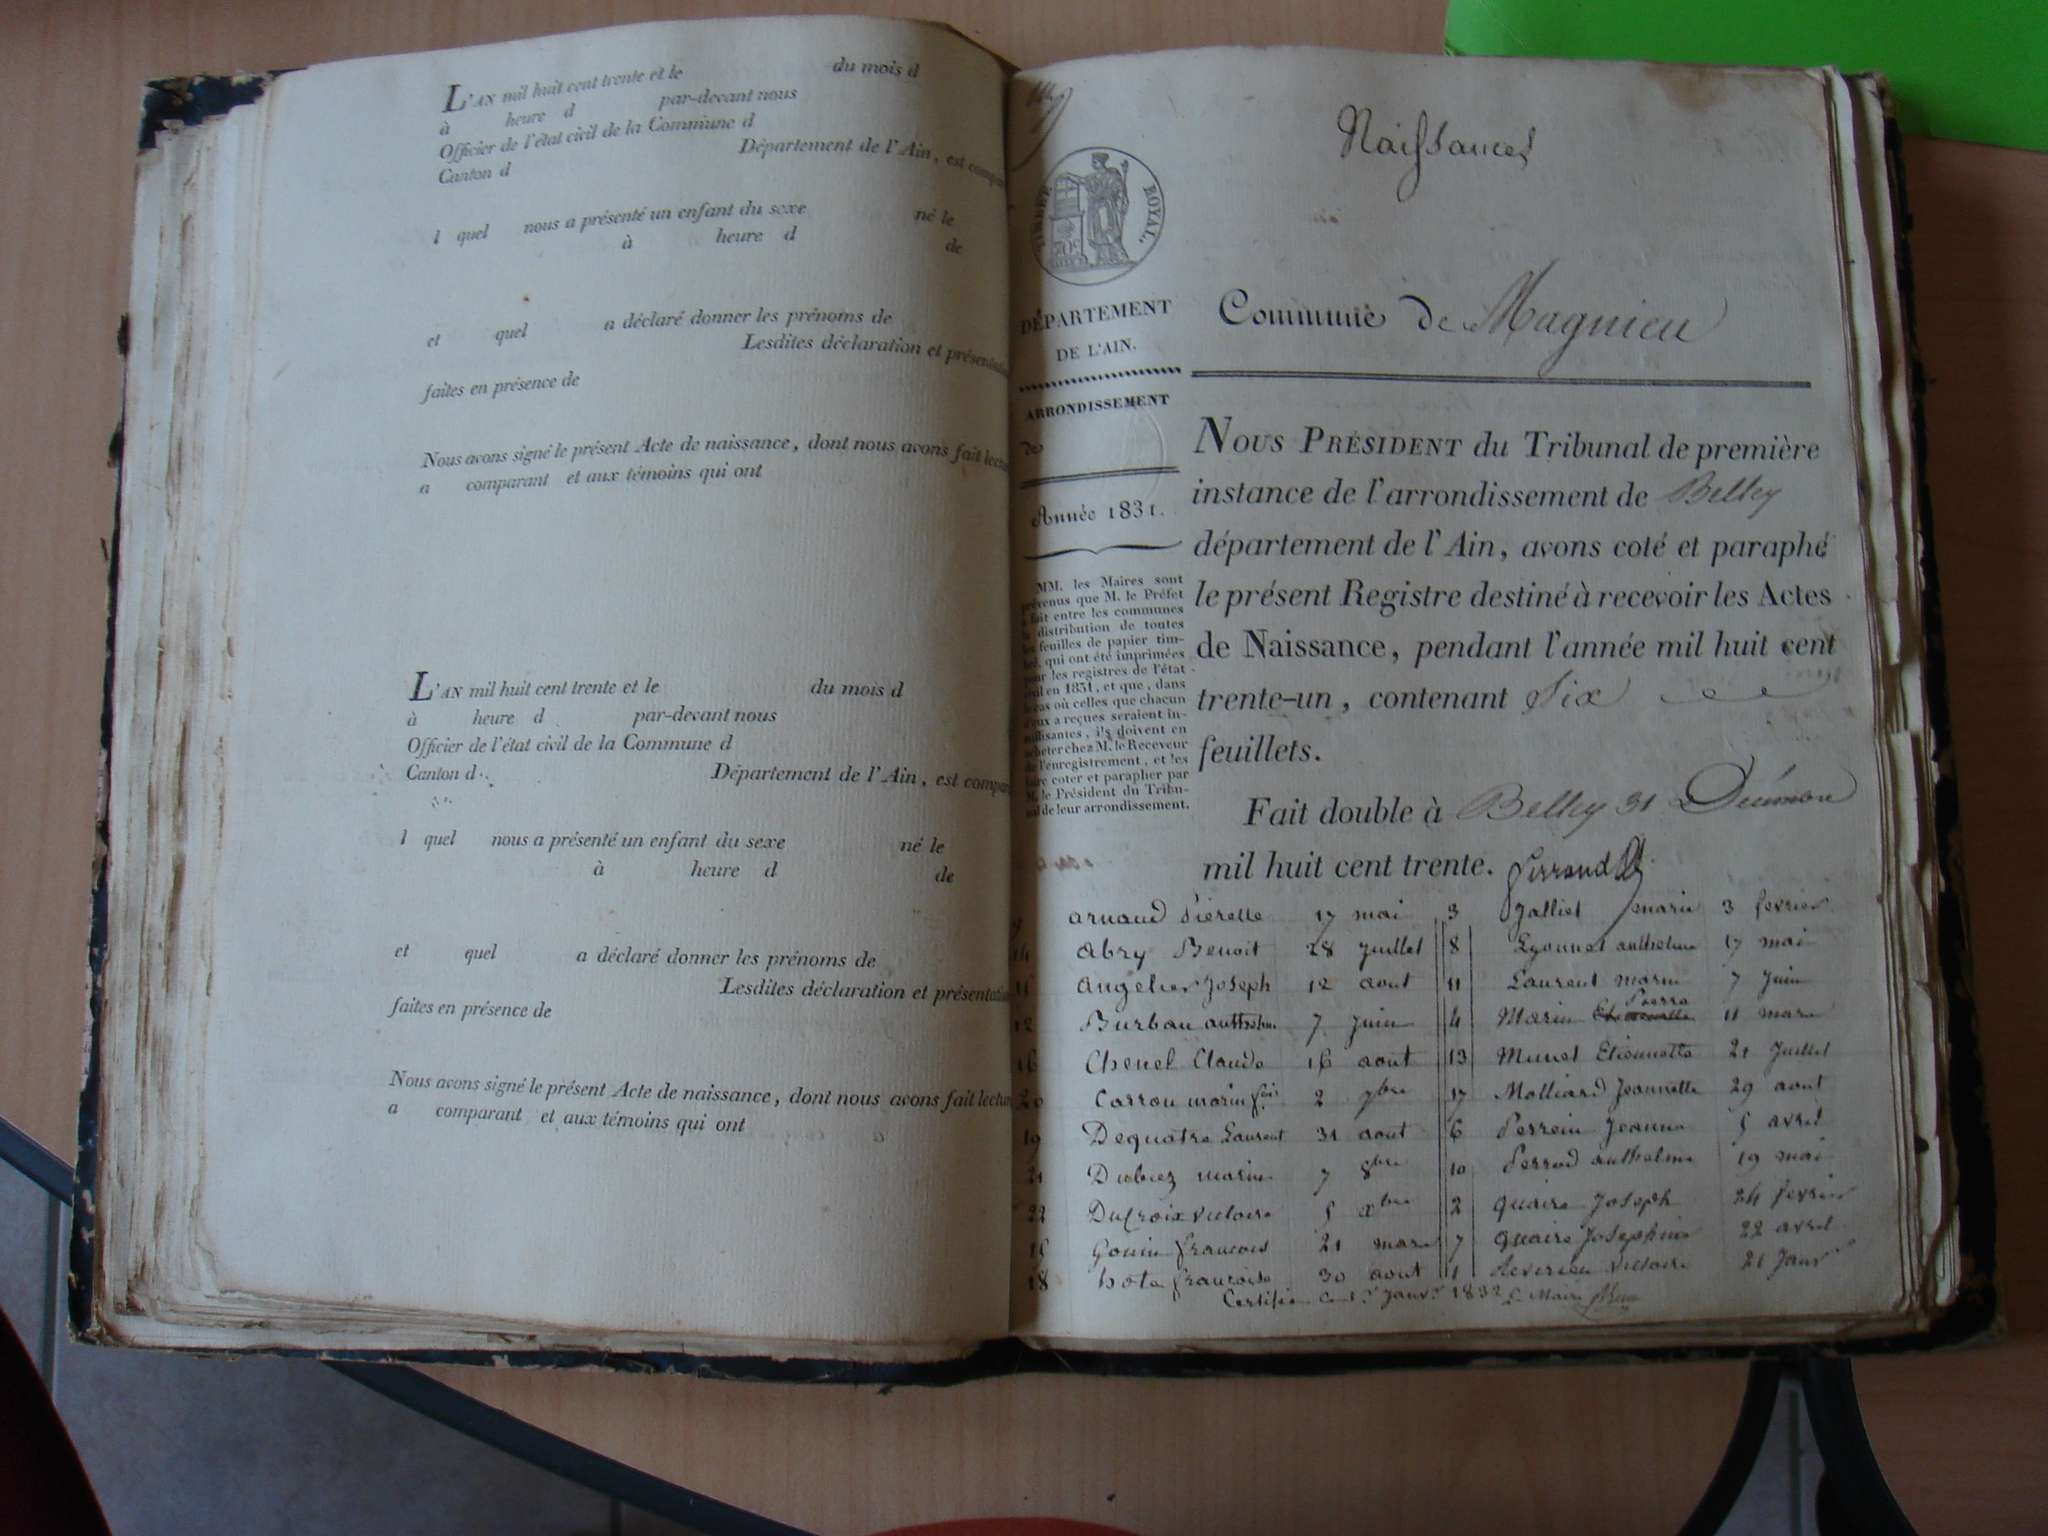 L'AN mil huit cent trente et le du mois d
à heure d par-devant nous
Officier de l'état civil de la Commune d
Canton d Département de l'Ain, est compar
l quel nous a présenté un enfant du sexe né le
à heure d de
et quel a déclaré donner les prénoms de
Lesdites déclaration et présentation
faites en présence de
Nous avons signé le présent Acte de naissance, dont nous avons fait lectu
a comparant et aux témoins qui ont
L'AN mil huit cent trente et le du mois d
à heure d par-devant nous
Officier de l'état civil de la Commune d
Canton d Département de l'Ain, est compar
l quel nous a présenté un enfant du sexe né le
à heure d de
et quel a déclaré donner les prénoms de
Lesdites déclaration et présentation
faites en présence de
Nous avons signé le présent Acte de naissance, dont nous avons fait lectur
a comparant et aux témoins qui ont
TIMBRE ROYAL.
70c
DÉPARTEMENT
DE L'AIN.
ARRONDISSEMENT
de
Année 1831.
MM. les Maires sont
prévenus que M. le Préfet
a fait entre les communes
la distribution de toutes
les feuilles de papier tim-
bré, qui ont été imprimées
pour les registres de l'état
civil en 1831, et que, dans
le cas où celles que chacun
d'eux a reçues seraient in-
suffisantes, ils doivent en
acheter chez M. le Receveur
de l'enregistrement, et les
faire coter et parapher par
M. le Président du Tribu-
nal de leur arrondissement.
Naissances
Commune de Magnieu
NOUS PRÉSIDENT du Tribunal de première
instance de l'arrondissement de Belley
département de l'Ain, avons coté et paraphé
le présent Registre destiné à recevoir les Actes
de Naissance, pendant l'année mil huit cent
trente-un, contenant Six
feuillets.
Fait double à Belley 31 Décembre
mil huit cent trente.
arnaud Pierette 17 mai 3 Jalliet marie 3 fevrier
14 Abry Benoit 28 Juillet 8 Lyonnet anthelme 17 mai
15 Angelier Joseph 12 aout 11 Laurent marie 7 Juin
12 Burbau anthelme 7 Juin 4 Marin Pierre 11 mars
16 Chenel Claude 16 aout 13 Munet Etiennette 21 Juillet
20 Carrou marie 2 7bre 17 Molliard Jeannette 29 aout
19 Dequatre Laurent 31 aout 6 Perrein Jeanne 5 avril
21 Dubiez marie 7 8bre 10 Perrod anthelme 19 mai
22 Ducroix Victoire 5 xbre 2 quaire Joseph 24 fevrier
15 Gouin francois 21 mars 7 quaire Josephine 22 avril
18 hote francoise 30 aout 1 Reverieu Victoire 21 Janvr
Certifié Janvr 1832 Le Maire